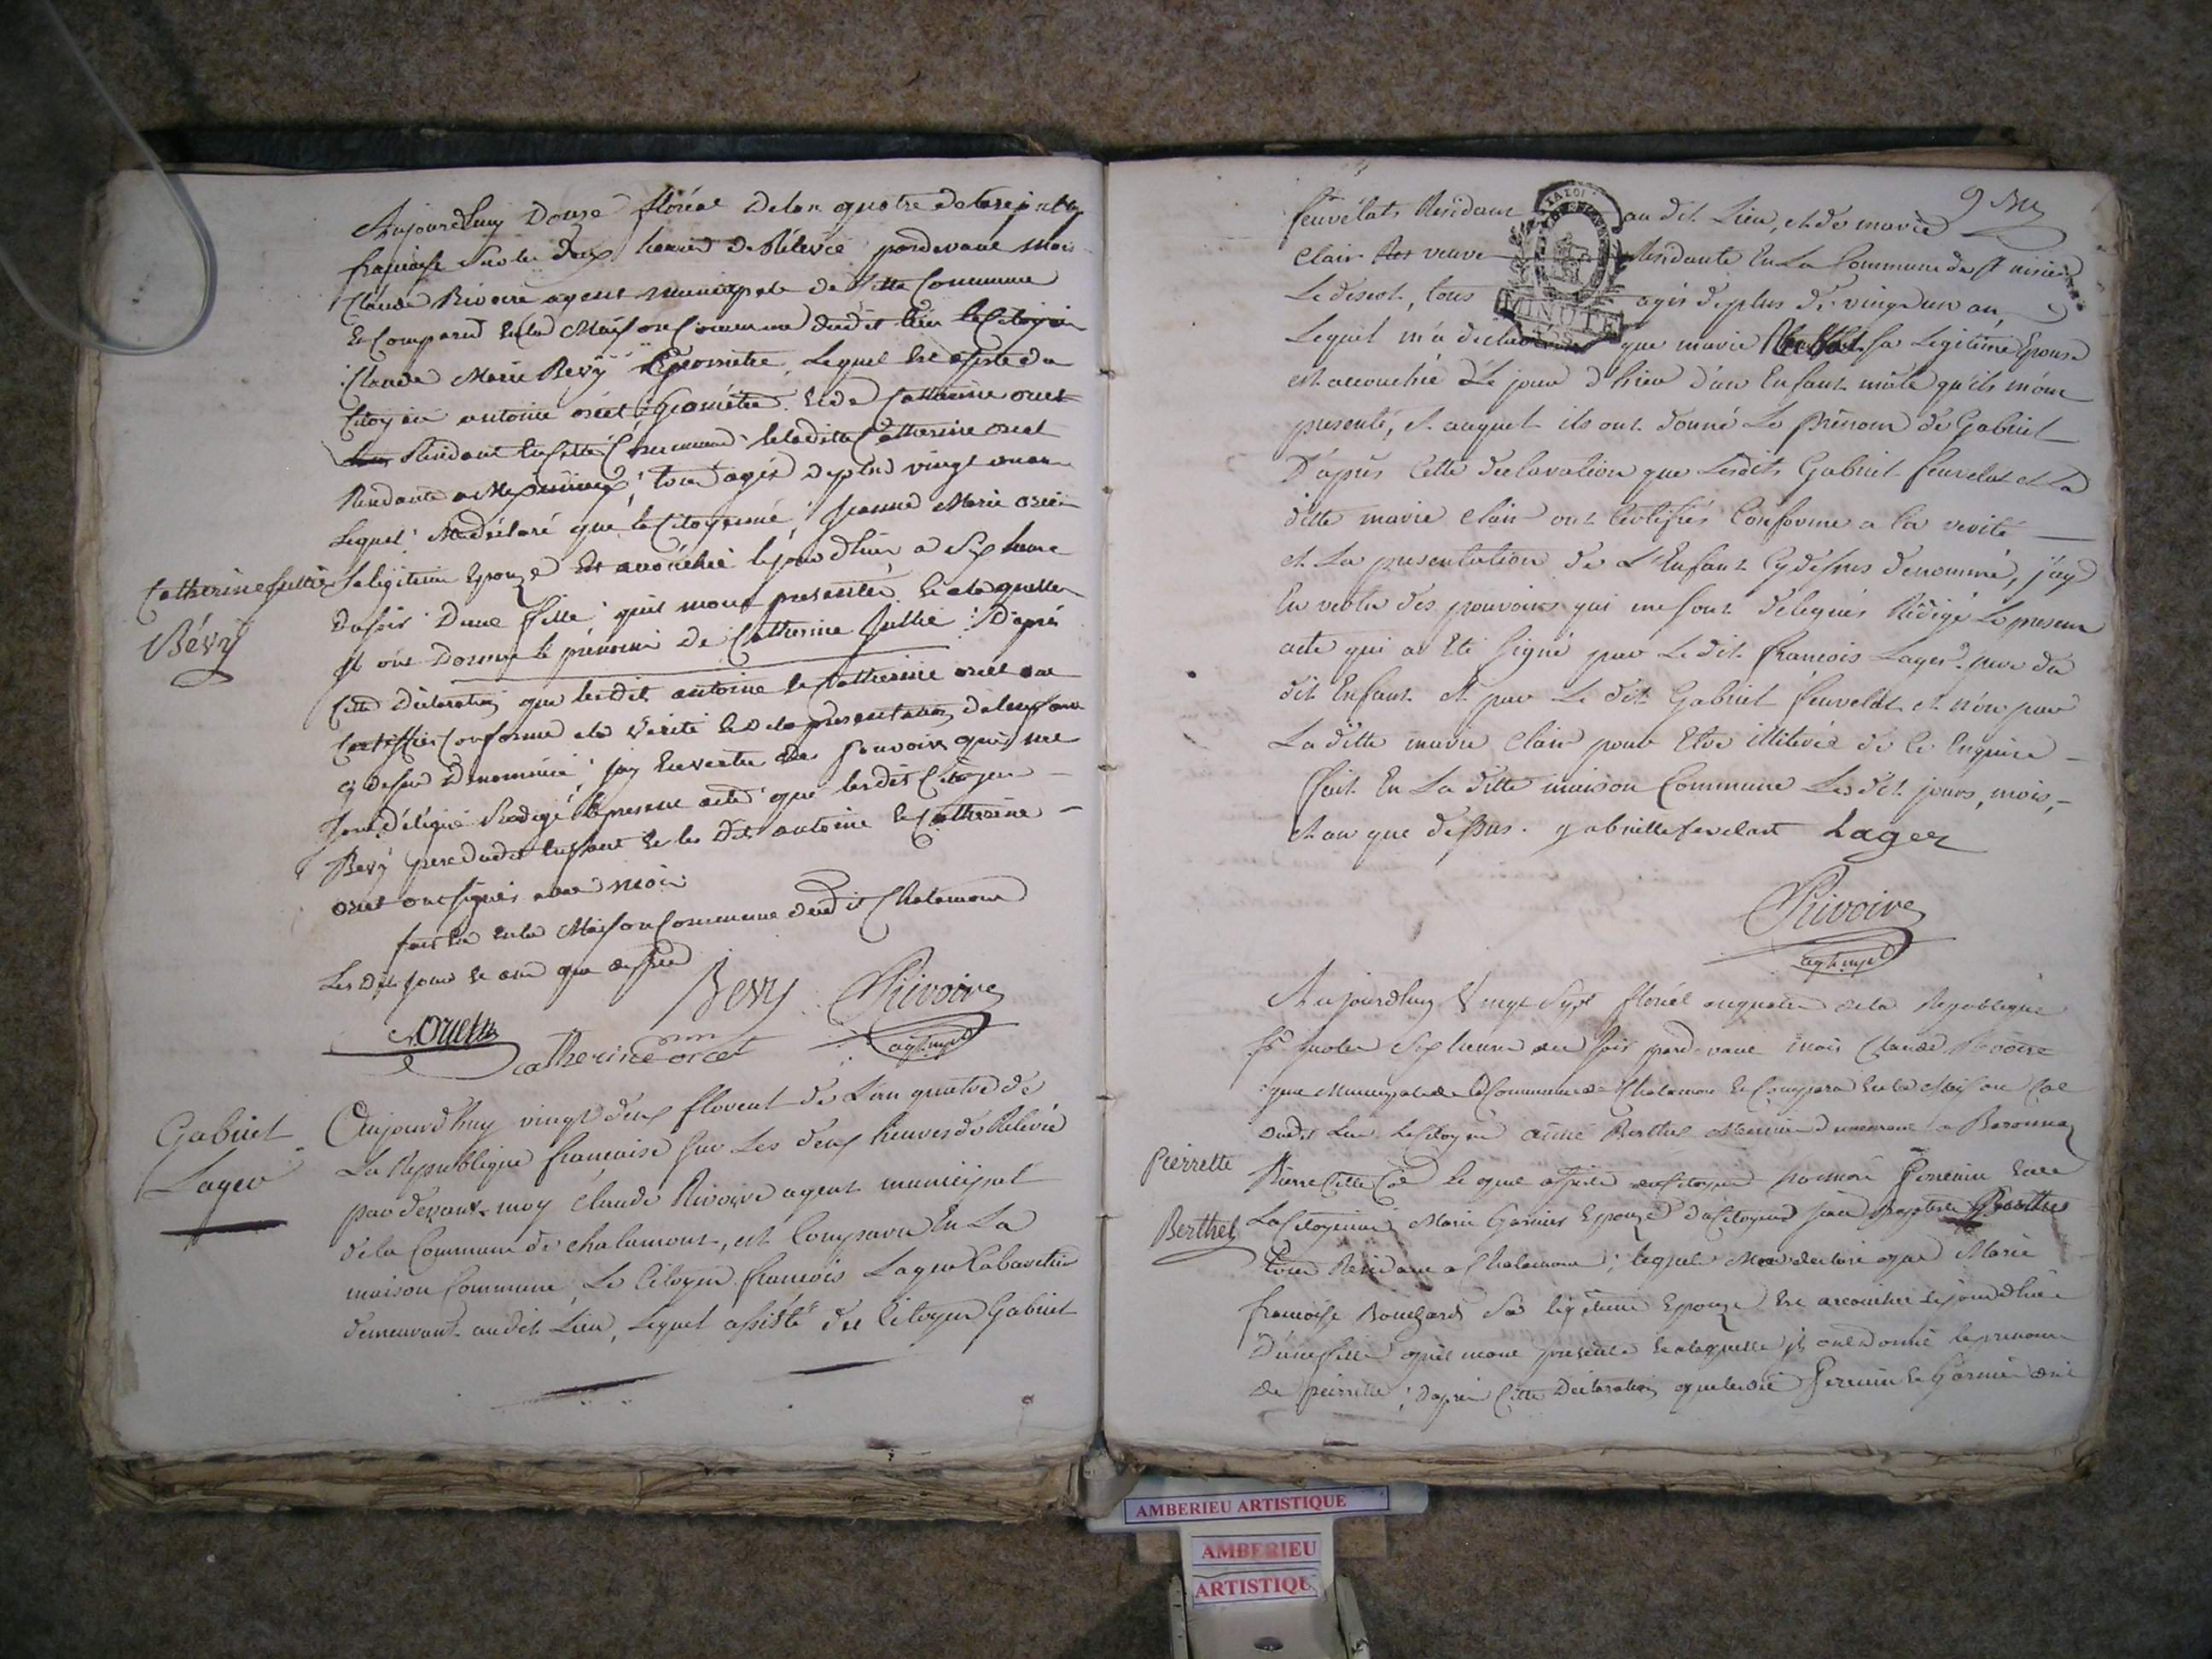 Aujourdhuy Douze floréal Delan quatre delarepub
francoise Sur les deux heures de Rélevée pardevant moi
Claude Rivoire agent municipale de Cette Commune
Est Comparu En la Maison Commune dudit lieu le Citoyen
Claude Marie Bevÿ Lequel Est assisté du
Citoyen antoine orcet Géométre Et de Catherine orcet
Residant En Cette Commune Et la ditte Catherine orcet
Residante a tous agés de plus vingt un an
Lequel Ma déclaré que la Citoyenne Jeanne Marie orcet
Catherine Jullie
Bévÿ
Sa legitime Epouze Est accouchée le jour d'hier a Six heure
Du soir D'une fille quil mont presentée Et a laquelle
Il ont Donné le prénom de Catherine Jullie D'aprés
Cette Déclaration que lesdit antoine Et Catherine orcet ont
Certiffiés Conforme a la Vérité Et de la presentation de lenfant
cy dessus Dénommée, jay En vertu des Pouvoirs qui me
sont Délégué Redigé le present acte que lesdit Citoyen
Bevÿ pere dudit Enfant Et les Dit antoine Et Catherine
orcet ont Signés avec moi
fait En la Maison Commune dudit Chalamont
Les Dit jour Et an que dessus
Bevy Rivoire
Orcet agt mpal
Catherine orcet
Gabriel
Lager
Aujourd'huy vingt deux floreal de L'an quatre de
La Republique francaise Sur Les deux heures de Relevée
par devant moy Claude Rivoire agent municipal
de la Commune de chalamont, est Comparu En La
maison Commune, Le Citoyen francois Lager Cabaretier
demeurant audit Lieu, Lequel assisté du Citoyen Gabriel
feuvelat Residant au dit Lieu, et de marie
Clair veuve Residante En La Commune de St nizier
Le désert, tous agés de plus de vingt un an
Lequel m'a déclaré que marie sa Legitime Epouse
est accouchée Le jour d'hier d'un Enfant mâle qu'ils m'ont
presenté, et auquel ils ont donné Le Prénom de Gabriel
D'après Cette declaration que Lesdits Gabriel feuvelat et La
ditte marie Clair ont Certifiés Conforme a la verité
et La presentation de L'Enfant Cy dessus denommé, j'ay
En vertu des pouvoirs qui me sont delegués Rédigé Le present
acte qui a Eté signé par Le dit francois Lager pere du
dit Enfant et par Le dit Gabriel feuvelat et non par
La ditte marie Clair pour Etre illiterée de Ce Enquise
Fait En La ditte maison Commune Les dit jours, mois,
et an que dessus. gabrielle fevelat Lager
Rivoire
agt mpal
MINUTE
Aujourdhuy Vingt Sept floréal an quatre de la Republique
fse Sur les Six heures du Soir pardevant moi Claude Rivoire
agent Municipale de la Commune de Chalamont Est Comparu En la Maison Cne
dudit Lieu Le Citoyen aimé Berthet demeurant a
Pierrette
Berthet
Cette Lequel assisté du Citoyen Et de
La Citoyenne Marie Garnier Epouze du Citoyen Jean Baptiste
tous Residant a Chalamont; lequel Ma declaré que Marie
francoise Sa legitime Epouze Est accouchée le jour d'hier
D'une fille quil mont presentée Et a laquelle ils ont Donné le prenom
de pierrette; D'aprés Cette Déclaration que lesdit Et Garnier ont
AMBERIEU ARTISTIQUE
AMBERIEU
ARTISTIQUE